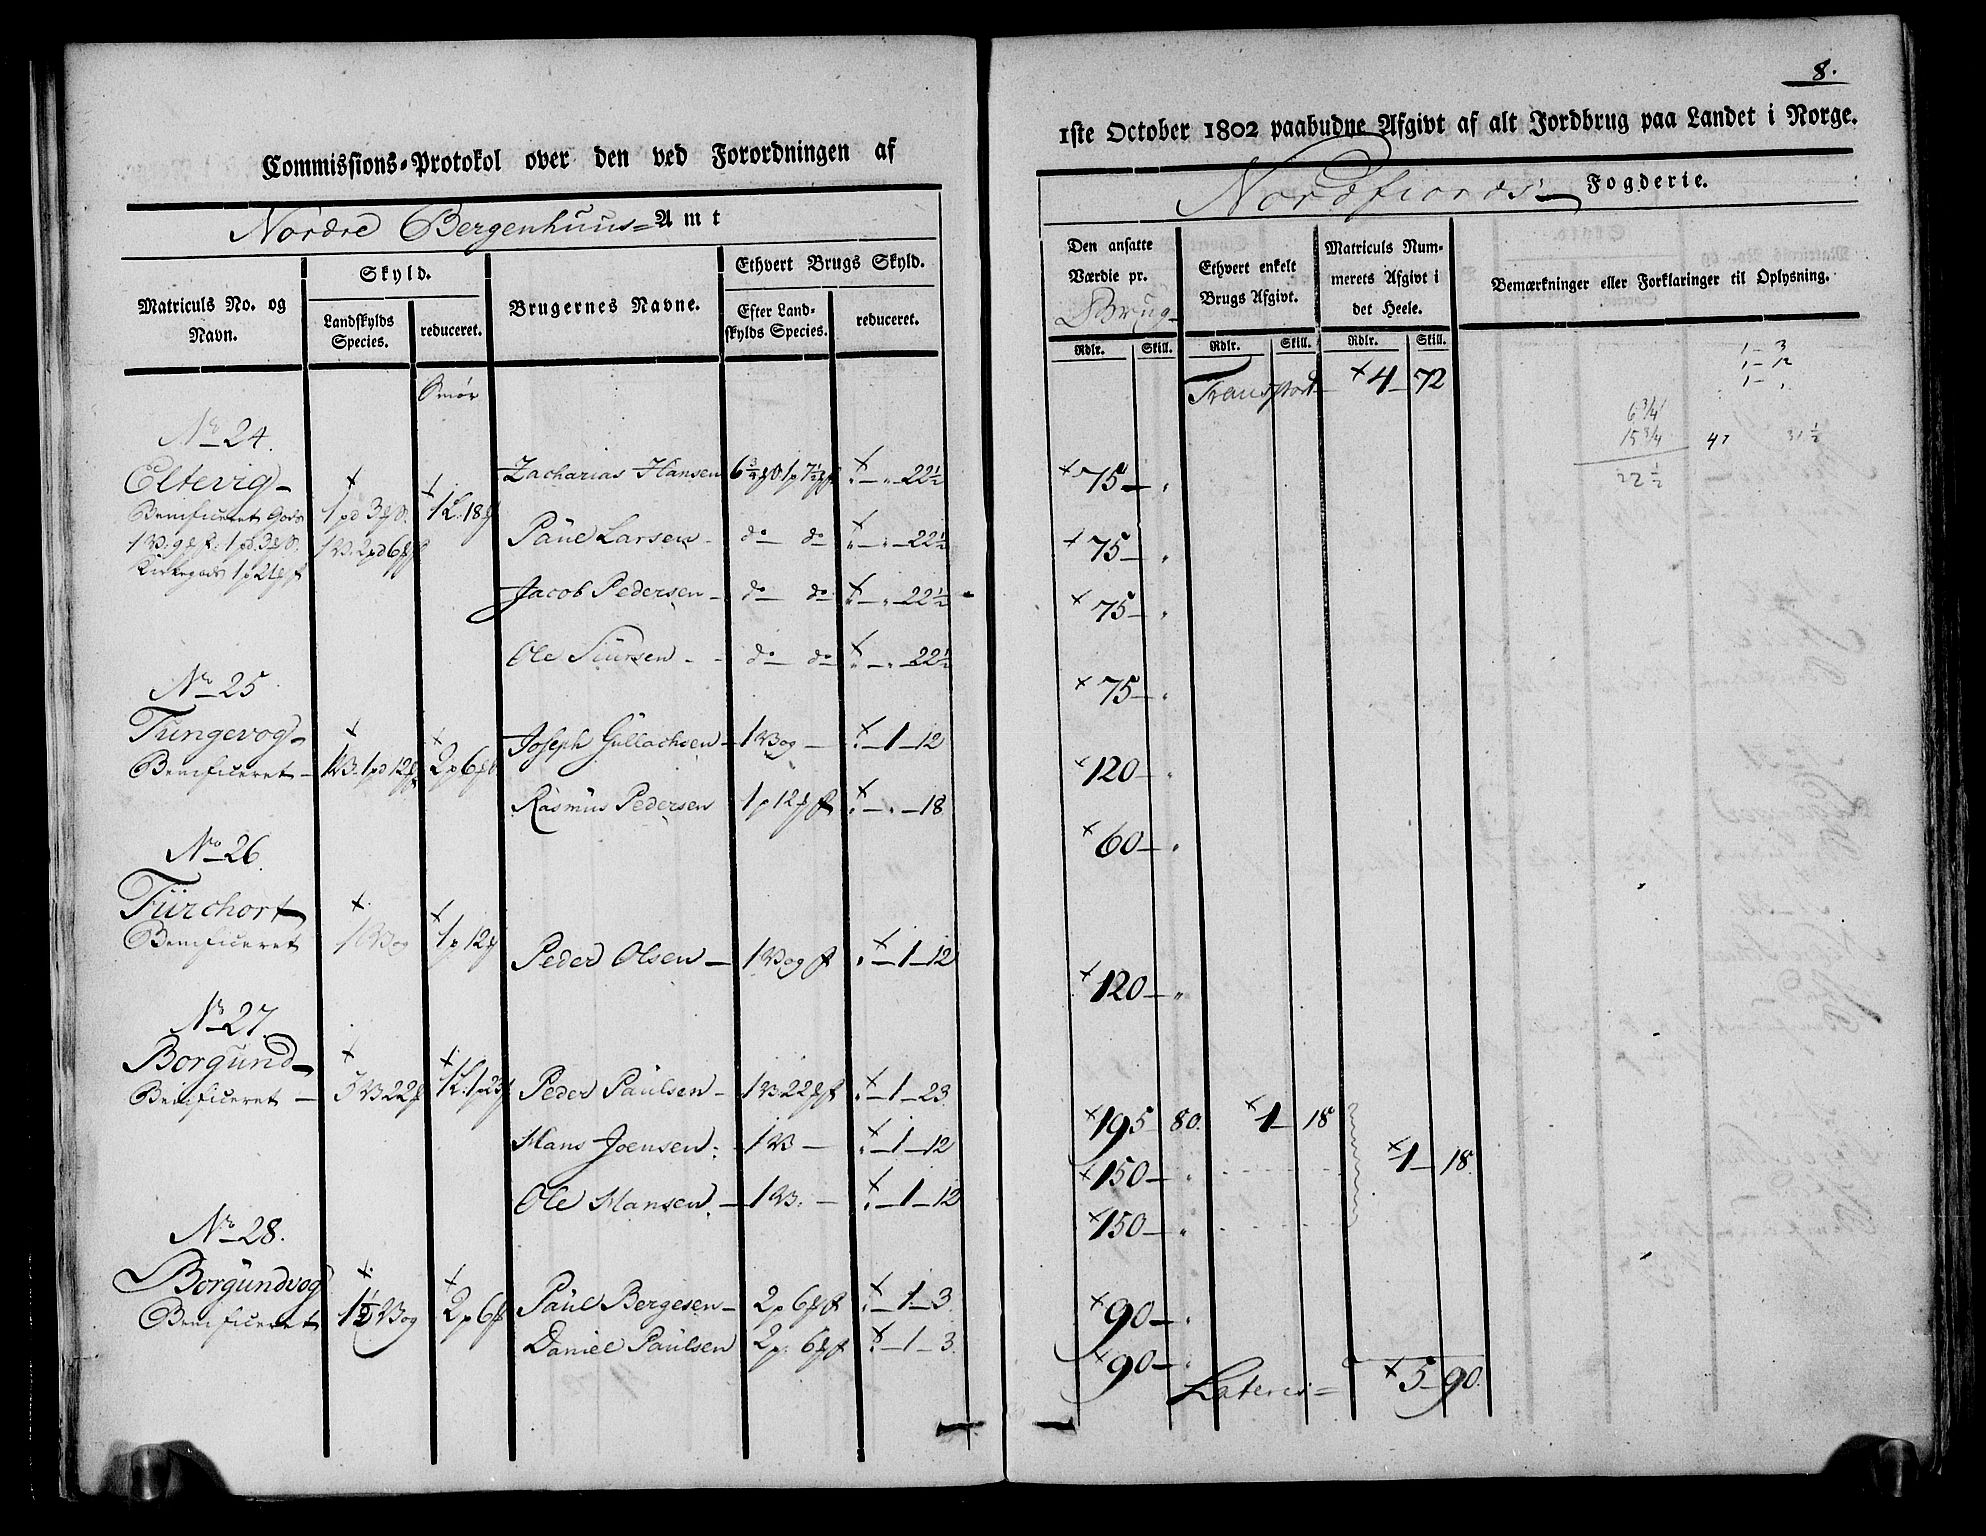 8.
Commissions-Protokol over den ved Forordningen af
1ste October 1802 paabudne Afgivt af alt Jordbrug paa Landet i Norge.
Nordre Bergenhuus= Amt
Nordfiords Fogderie.
Matriculs No. og Navn.
Skyld.
Landskylds Species.
reduceret.
Brugernes Navne.
Ethvert Brugs Skyld.
Efter Landskylds Species.
reduceret.
Den ansatte Værdie pr. Brug
Ethvert enkelt Brugs Afgivt.
Matriculs Nummerets Afgivt i det Heele.
Bemærkninger eller Forklaringer til Oplysning.
Rdlr. Skill. Rdlr. Skill. Rdlr. Skill.
Smør
Transport 4 72
1 - 3
1 - 12
1 - "
6 3/4
15 3/4 47 31 1/2
22 1/2
No 24.
Eltevig
Zacharias Hansen 22½ 75 "
Benificeret Gods
Paul Larsen do do 22½ 75 "
Jacob Pedersen do do 22½ 75 "
Ole Siursen do do 22½ 75 "
No 25
Tungevog
Benificeret
Joseph Gullachsen 1 Vog 1 12 120 "
Rasmus Pedersen 18 60 "
No 26.
Furchort
Benificeret 1 Vog
Peder Olsen 1 Vog 1 12 120 "
No 27.
Borgund
Benificeret
Peder Paulsen 1 23. 195 80. 1 18
Hans Joensen 1 V 1 12 150 " 1 18.
Ole Hansen 1 V. 1 12 150 "
No 28.
Borgundvog
Benificeret 1½ Vog
Paul Bergesen 1 3. 90 "
Daniel Paulsen 1 3. 90 "
Lateris 5 90.